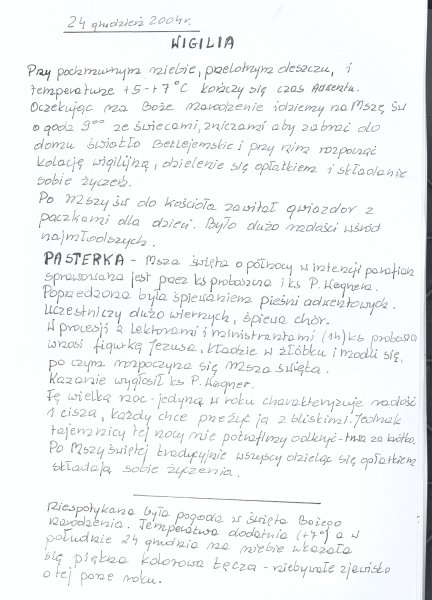 24 grudzień 2004r.
WIGILIA
Przy pochmurnym niebie, przelotnym deszczu, i
temperaturze +5-+7°C kończy się czas Adwentu.
Oczekując na Boże Narodzenie idziemy na Mszę Św
o godz 9°° ze świecami, zniczami aby zabrać do
domu światło Betlejemskie i przy nim rozpocząć
kolację wigilijną, dzielenie się opłatkiem i składanie
sobie życzeń.
Po Mszy św do kościoła zawitał gwiazdor z
paczkami dla dzieci. Było dużo radości wśród
najmłodszych.
PASTERKA - Msza święta o północy w intencji parafian
sprawowana jest przez ks proboszcza i ks P. Wagnera.
Poprzedzona była śpiewaniem pieśni adwentowych.
Uczestniczy dużo wiernych, śpiewa chór.
W procesji z Lektorami i ministrantami (14) ks proboszcz
wnosi figurkę Jezusa, kładzie w żłóbku i modli się,
po czym rozpoczyna się Msza święta.
Kazanie wygłosił ks P. Wagner.
Tę wielką noc - jedyną w roku charakteryzuje radość
i cisza, każdy chce przeżyć ją z bliskimi. Jednak
tajemnicy tej nocy nie potrafimy odkryć - trwa za krótko.
Po Mszy świętej tradycyjnie wszyscy dzieląc się opłatkiem
składają sobie życzenia.
Niespotykana była pogoda w święta Bożego
Narodzenia. Temperatura dodatnia (+7°) a w
południe 24 grudnia na niebie ukazała
się piękna kolorowa tęcza - niebywałe zjawisko
o tej porze roku.